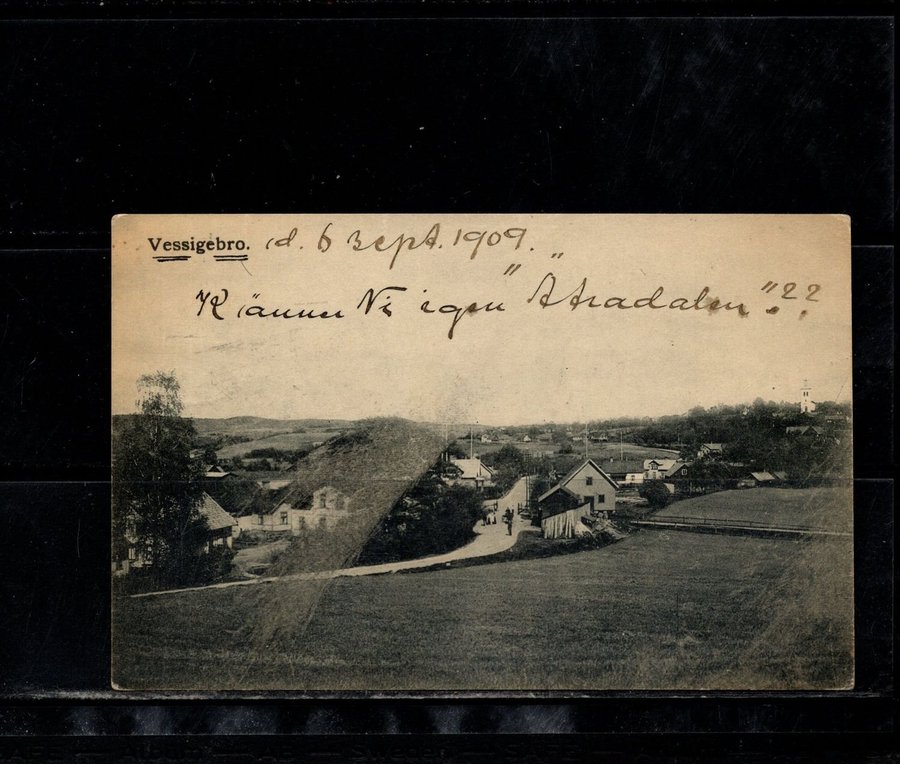 Vessigebro. d. 6 sept. 1909.
Känner Ni igen "Ätradalen"??